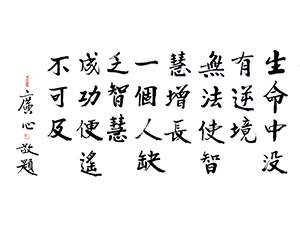 生命中没
有逆境
無法使智
慧增長
一個人缺
乏智慧
成功便遙
不可及
廣心敬題